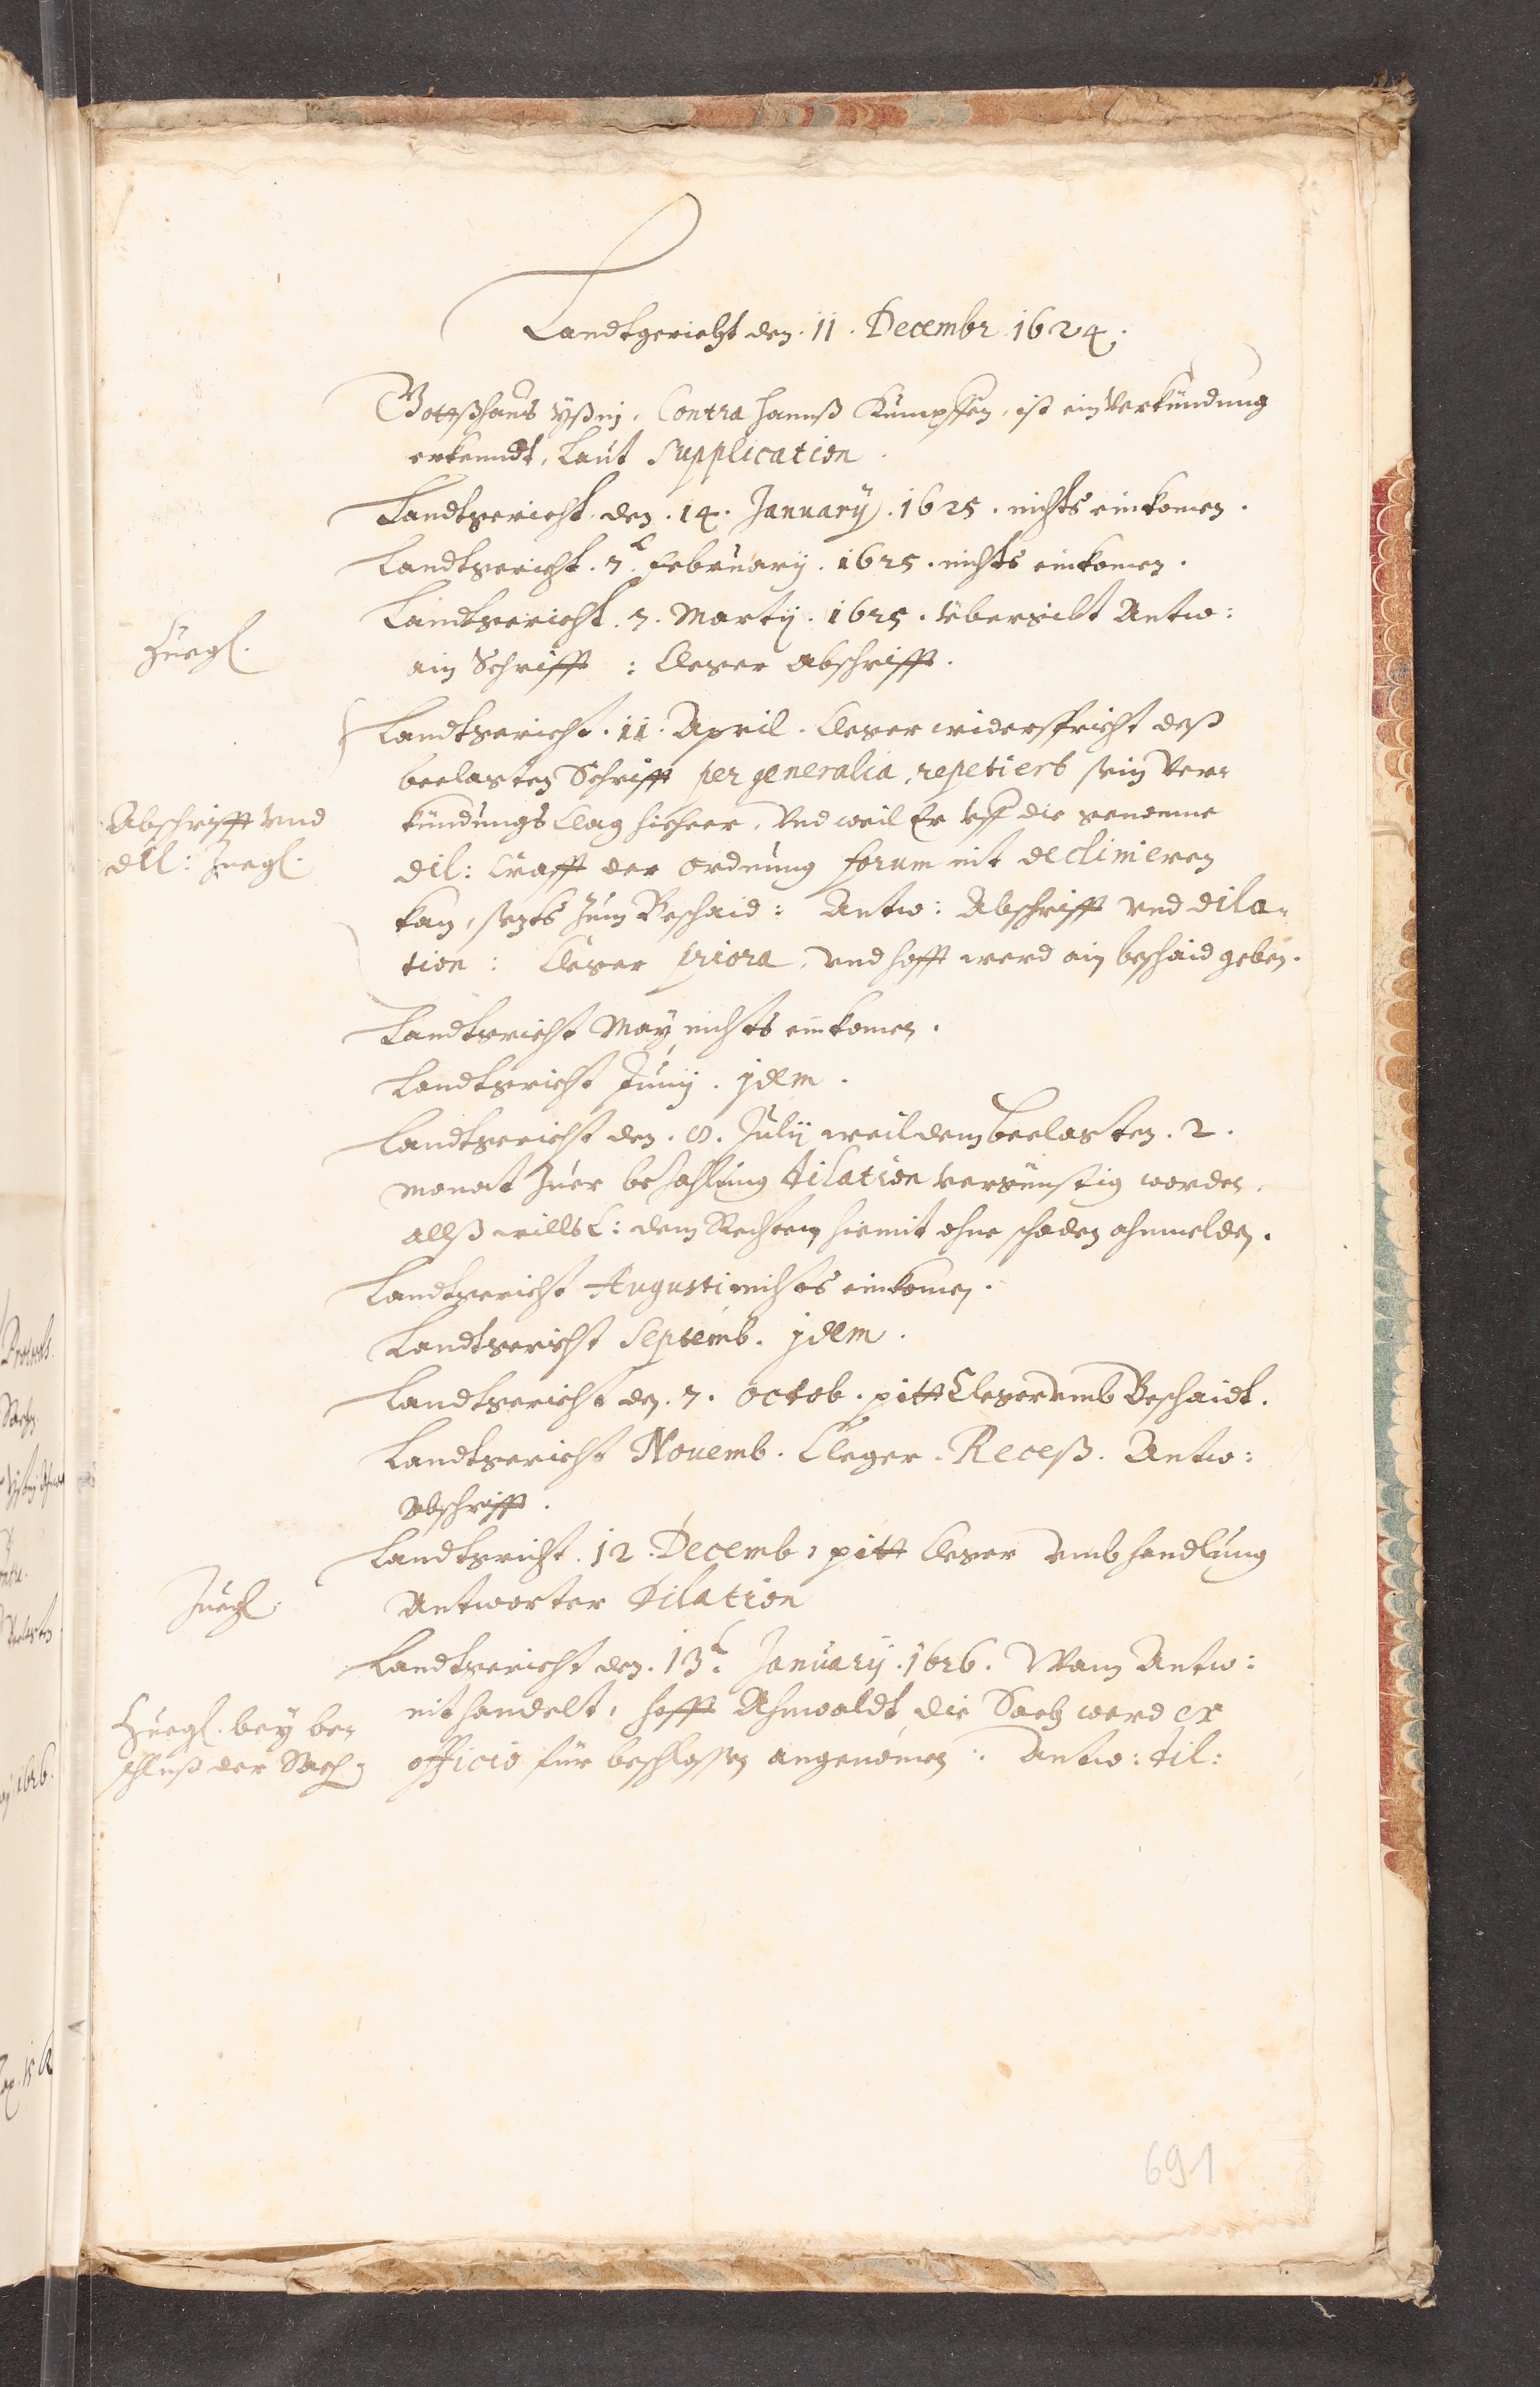 Landtgericht den. 11. Decembr 1624.
Gottßhaus Yßnj. Contra Hannß Kümpffen, ist ein Verkündung
erkenndt, Laut Supplication.
Landtgericht den. 14. January. 1625. nichts einkomen.
Landtgericht. 7. February. 1625. nichts einkomen.
Landtgericht. 7. Martij. 1625. Übergibt Antw:
Zuegl.
ain Schrifft : Cleger Abschrifft.
Landtgericht. 11. April. Cleger widerspricht deß
beclagten Schrifft per generalia, repetiert sein Ver-
Abschrifft vnd
kündungs Clag hieheer, Vnd weil Er vff die genomne
dil: Zuegl.
dil: Crafft der ordnung forum nit declinieren
kan, sezts zum Beschaid: Antw: Abschrifft vnd dila-
tion : Cleger priora, vnd hofft werd ain beschaid geben.
Landtgericht May nichts einkomen.
Landtgericht Junij. jdem.
Landtgericht den. 8. Julij weil dem beclagten. 2.
monat Zuer bezahlung dilation vergünstig worden,
allß wills C: dem Rechten hiemit ohne schaden ahnmelden.
Landtgericht Augusti nichts einkomen.
Landtgericht Septemb. jdem.
Landtgericht den. 7. octob. pitt Cleger vmb Beschaidt.
Landtgericht Nouemb. Cleger. Receß. Antw:
Abschrifft.
Landtgericht. 12. Decemb: pitt Cleger vmb handlung
Zuegl.
Antworter Dilation
Landtgericht den. 13. January. 1626. Wann Antw:
nit handelt, hofft Ahnwaldt, die Sach werd ex
Zuegl. bey be-
schluß der Sach.
officio für beschlossen angenomen :. Antw: dil:
691